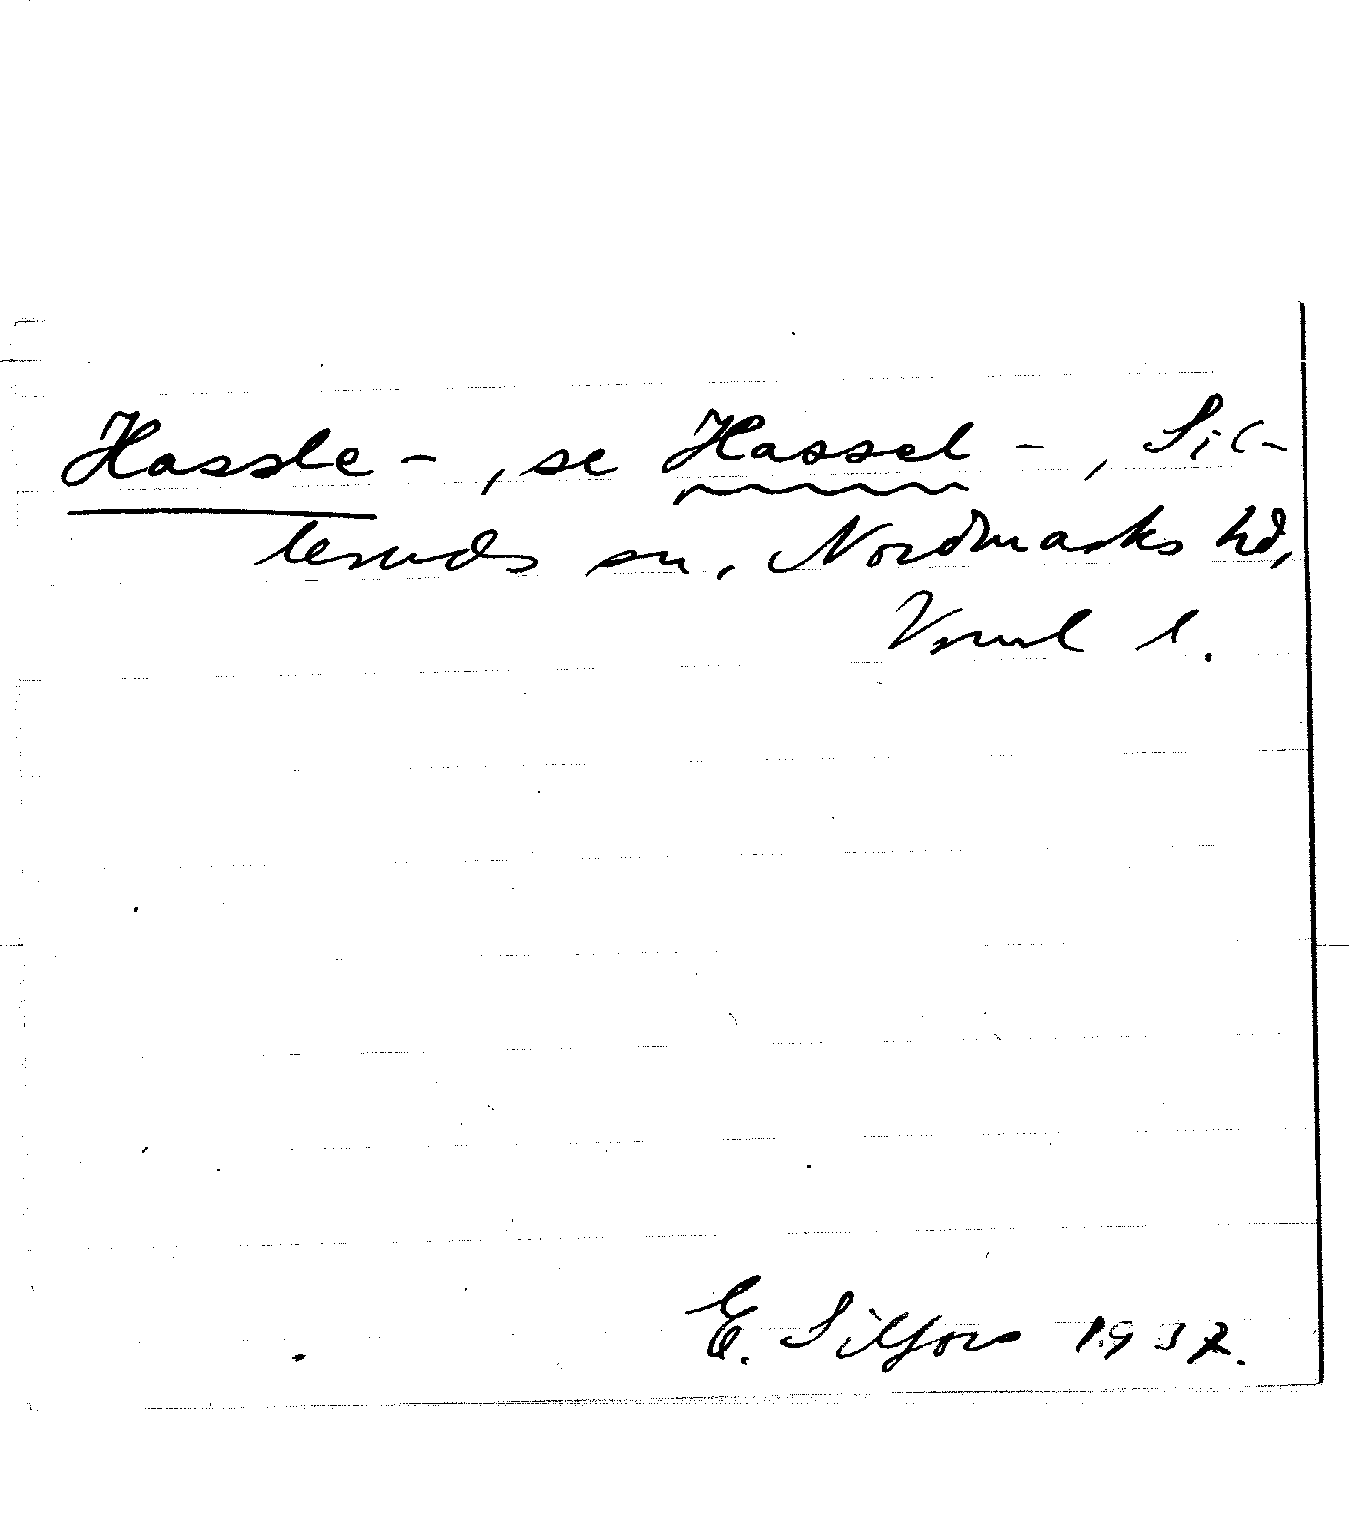 Hassle-, se Hassel-, Sil-
leruds sn, Nordmarks hd,
Vrml l.
E. Silfors 1937.